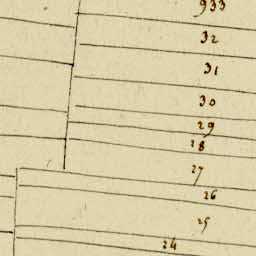 933
32
31
30
29
28
27
26
25
24